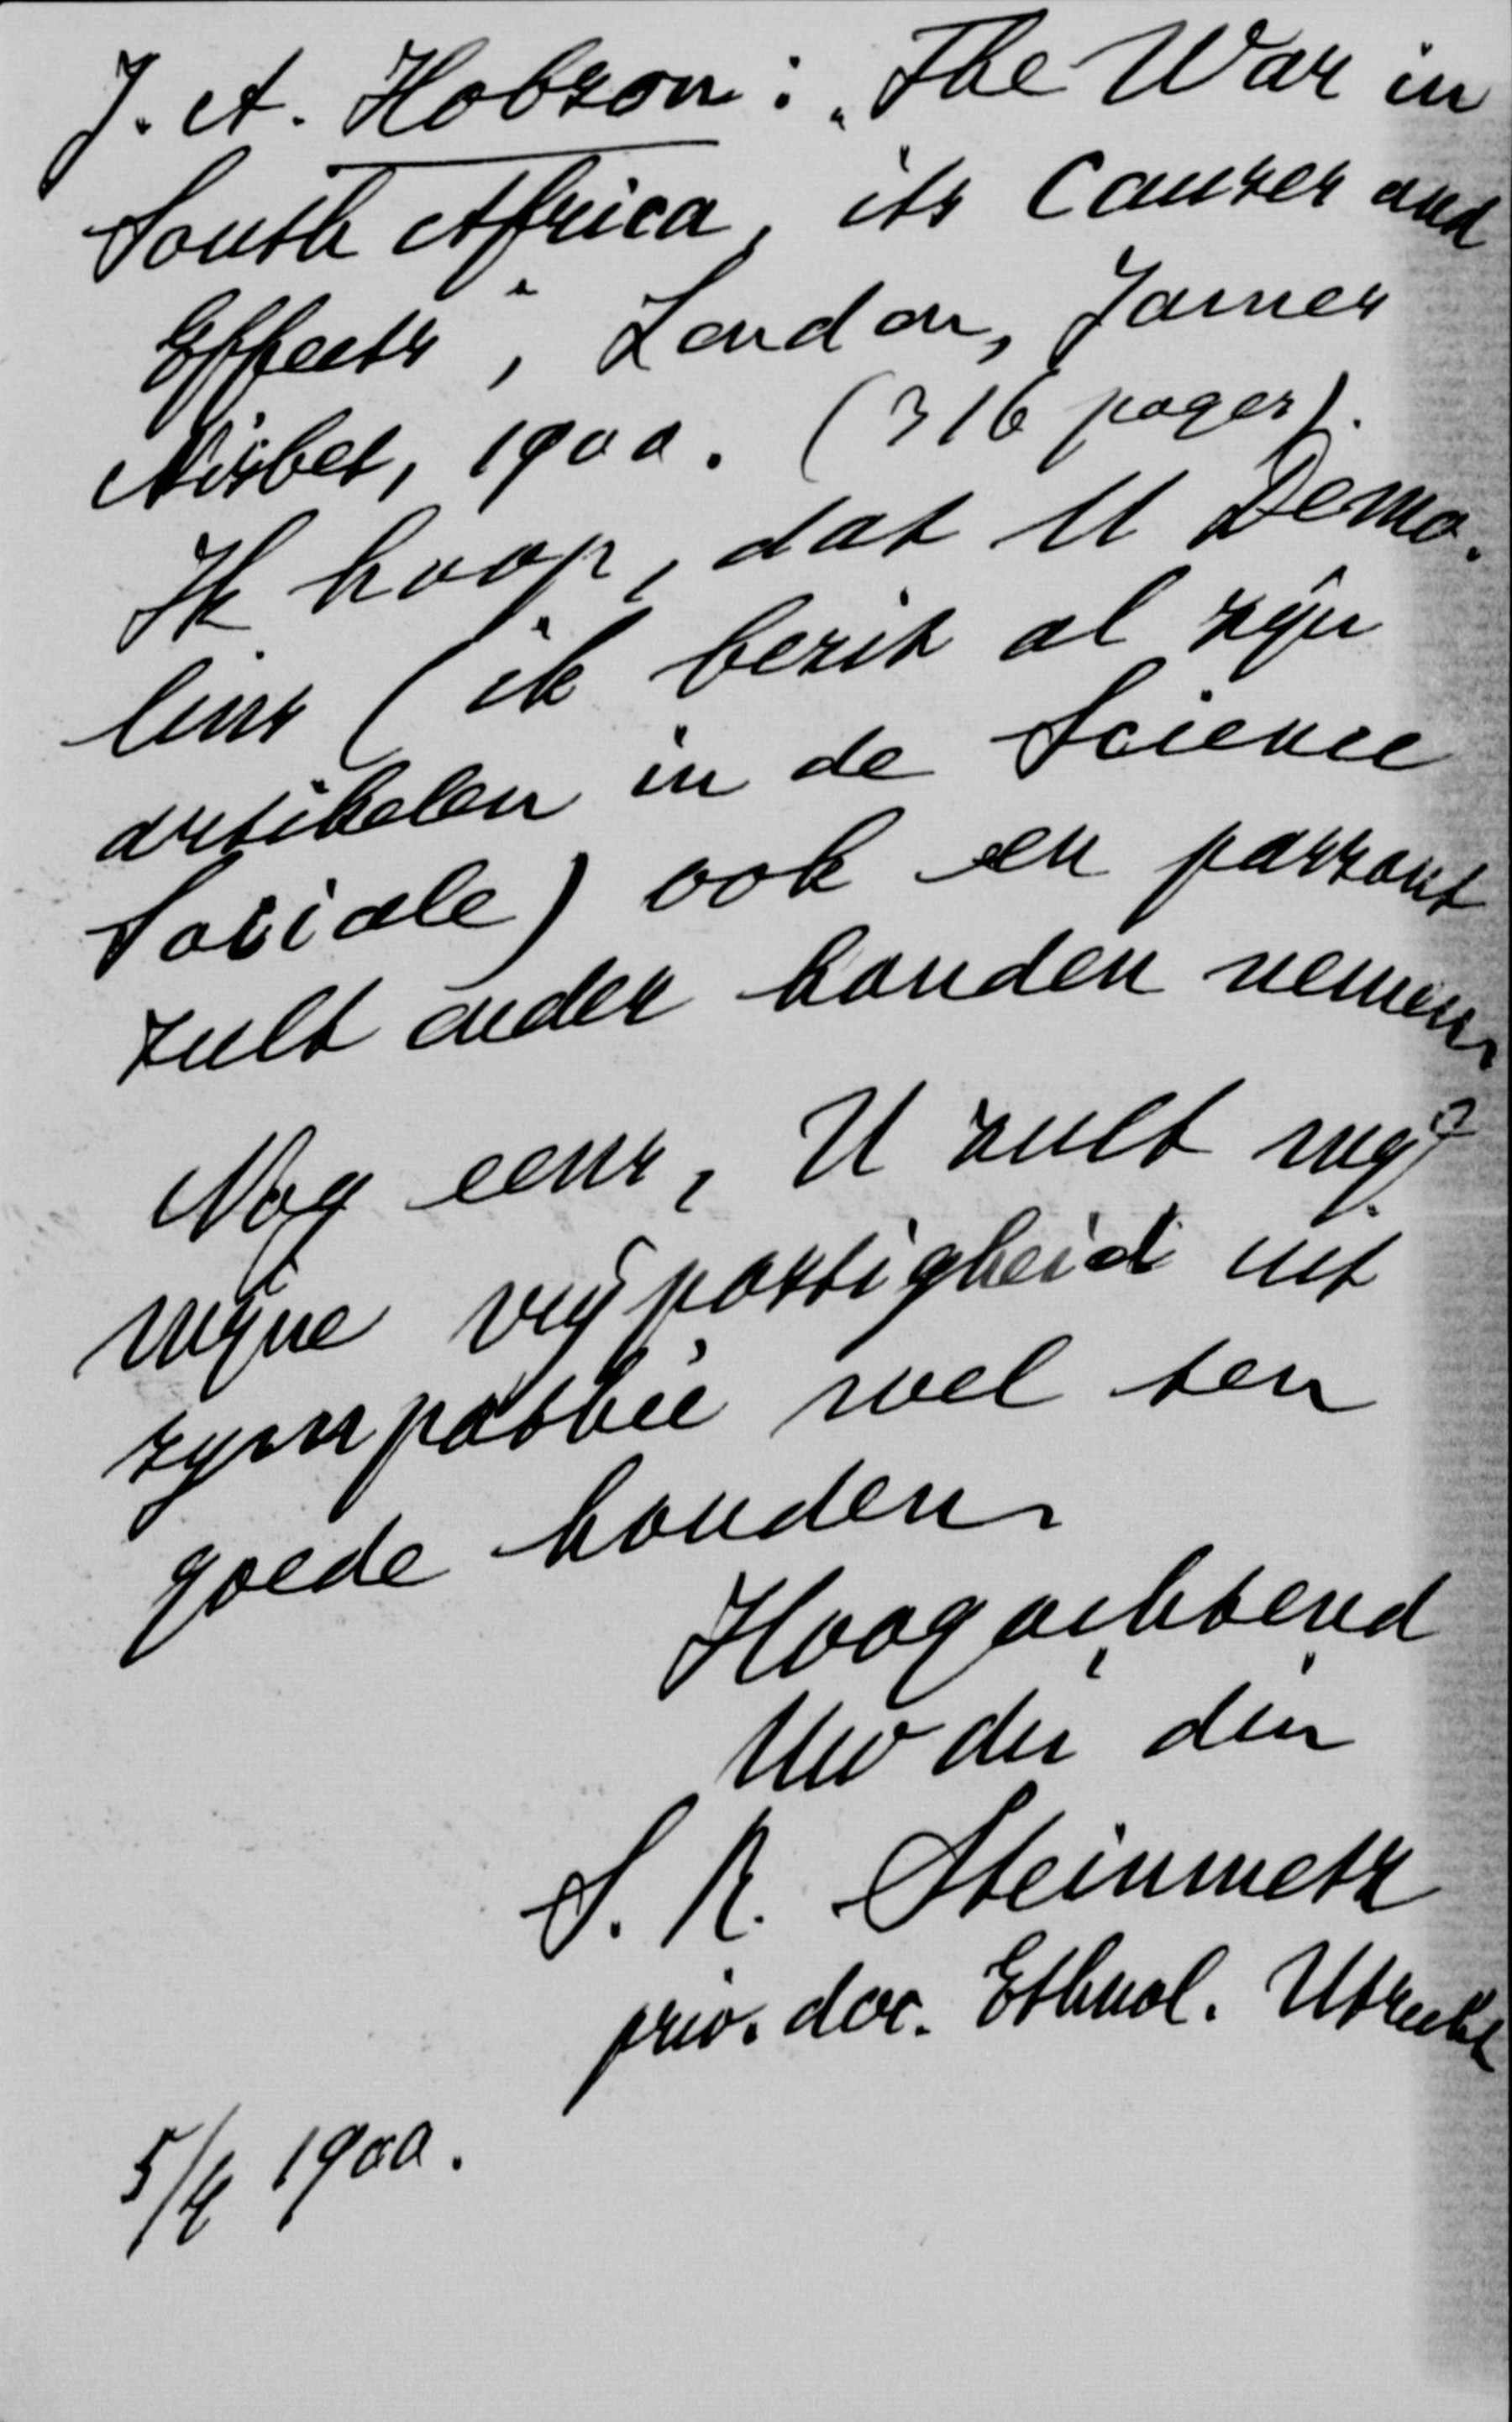 J. A. Hobson : „The War in
South Africa, its Causes and
Effects", London, James
Nisbet, 1900. (316 pages).
Ik hoop, dat U Demo-
lins (ik bezit al zijn
artikelen in de Science
Sociale) ook en passant
zult onder handen nemen.
Nog eens, U zult mij
mijne vrijpostigheid uit
sympathie wel ten
goede houden.
Hoogachtend
Uw dw dn
S. R. Steinmetz
priv. doc. Ethnol. Utrecht
5/4 1900.